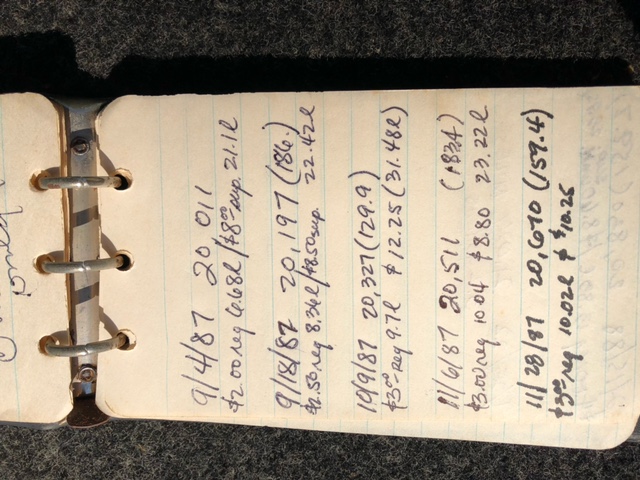 9/4/87 20 011
$2.00 reg 6.68l/$8.00 sup. 21.1l
9/18/87 20,197 (186.)
$2.50 reg 8.36l/$8.50 sup. 22.42l
10/9/87 20,327 (129.9)
$3.00 reg 9.7l $12.25 (31.48l)
11/6/87 20,511 (183.4)
$3.00 reg 10.04 $8.80 23.22l
11/28/87 20,670 (159.4)
$3.00 reg 10.02l $10.25